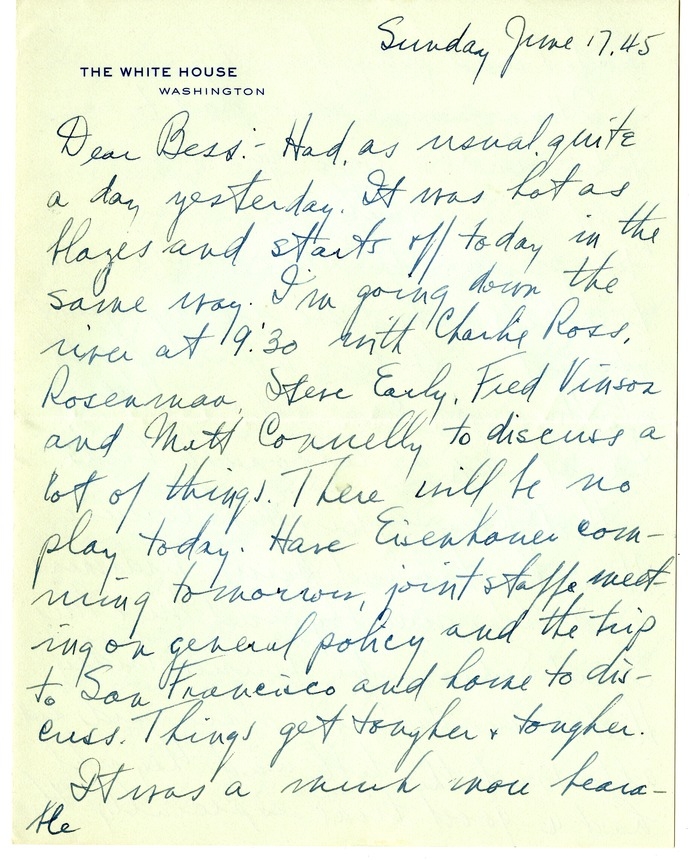 Sunday June 17, 45
THE WHITE HOUSE
WASHINGTON
Dear Bess:- Had, as usual, quite
a day yesterday. It was hot as
blazes and starts off today in the
same way. I'm going down the
river at 9:30 with Charlie Ross,
Rosenman, Steve Early, Fred Vinson
and Matt Connelly to discuss a
lot of things. There will be no
play today. Have Eisenhower com-
ming tomorrow, joint staffs meet-
ing on general policy and the trip
to San Francisco and home to dis-
cuss. Things get tougher & tougher.
It was a much more beara-
ble